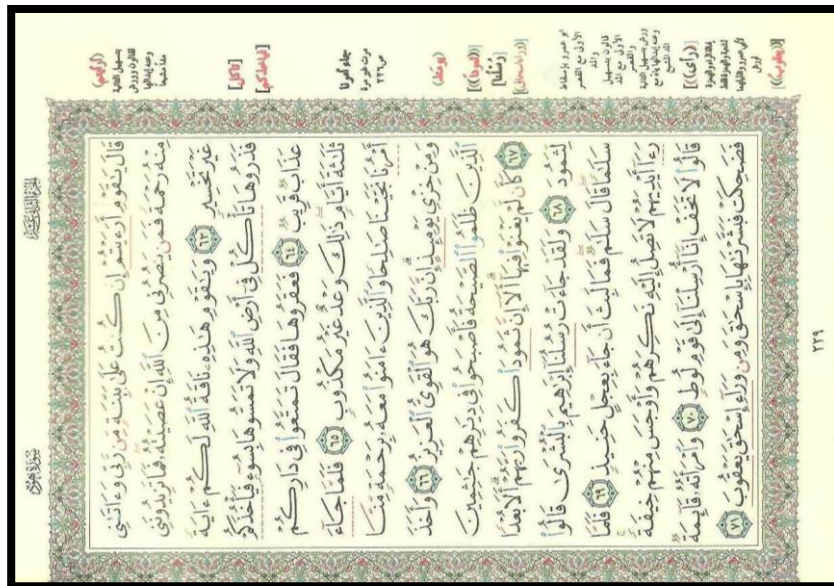 سُورَةُ هُودٍ
قَالَ يَٰقَوْمِ أَرَءَيْتُمْ إِن كُنتُ عَلَىٰ بَيِّنَةٍ مِّن رَّبِّى وَءَاتَىٰنِى
مِنْهُ رَحْمَةً فَمَن يَنصُرُنِى مِنَ ٱللَّهِ إِنْ عَصَيْتُهُۥ فَمَا تَزِيدُونَنِى
غَيْرَ تَخْسِيرٍ ٦٣ وَيَٰقَوْمِ هَٰذِهِۦ نَاقَةُ ٱللَّهِ لَكُمْ ءَايَةً
فَذَرُوهَا تَأْكُلْ فِىٓ أَرْضِ ٱللَّهِ وَلَا تَمَسُّوهَا بِسُوٓءٍ فَيَأْخُذَكُمْ
عَذَابٌ قَرِيبٌ ٦٤ فَعَقَرُوهَا فَقَالَ تَمَتَّعُوا۟ فِى دَارِكُمْ
ثَلَٰثَةَ أَيَّامٍ ذَٰلِكَ وَعْدٌ غَيْرُ مَكْذُوبٍ ٦٥ فَلَمَّا جَآءَ
أَمْرُنَا نَجَّيْنَا صَٰلِحًا وَٱلَّذِينَ ءَامَنُوا۟ مَعَهُۥ بِرَحْمَةٍ مِّنَّا
وَمِنْ خِزْىِ يَوْمِئِذٍ إِنَّ رَبَّكَ هُوَ ٱلْقَوِىُّ ٱلْعَزِيزُ ٦٦ وَأَخَذَ
ٱلَّذِينَ ظَلَمُوا۟ ٱلصَّيْحَةُ فَأَصْبَحُوا۟ فِى دِيَٰرِهِمْ جَٰثِمِينَ
٦٧ كَأَن لَّمْ يَغْنَوْا۟ فِيهَآ أَلَآ إِنَّ ثَمُودَا۟ كَفَرُوا۟ رَبَّهُمْ أَلَا بُعْدًا
لِّثَمُودَ ٦٨ وَلَقَدْ جَآءَتْ رُسُلُنَآ إِبْرَٰهِيمَ بِٱلْبُشْرَىٰ قَالُوا۟
سَلَٰمًا قَالَ سَلَٰمٌ فَمَا لَبِثَ أَن جَآءَ بِعِجْلٍ حَنِيذٍ ٦٩ فَلَمَّا
رَءَآ أَيْدِيَهُمْ لَا تَصِلُ إِلَيْهِ نَكِرَهُمْ وَأَوْجَسَ مِنْهُمْ خِيفَةً
قَالُوا۟ لَا تَخَفْ إِنَّآ أُرْسِلْنَآ إِلَىٰ قَوْمِ لُوطٍ ٧٠ وَٱمْرَأَتُهُۥ قَآئِمَةٌ
فَضَحِكَتْ فَبَشَّرْنَٰهَا بِإِسْحَٰقَ وَمِن وَرَآءِ إِسْحَٰقَ يَعْقُوبَ ٧١
٢٢٩
(أرأيتم)
[تأكل]
جاء أمرنا
(يومئذ)
[رسلنا]
((رأى))
((يعقوب))